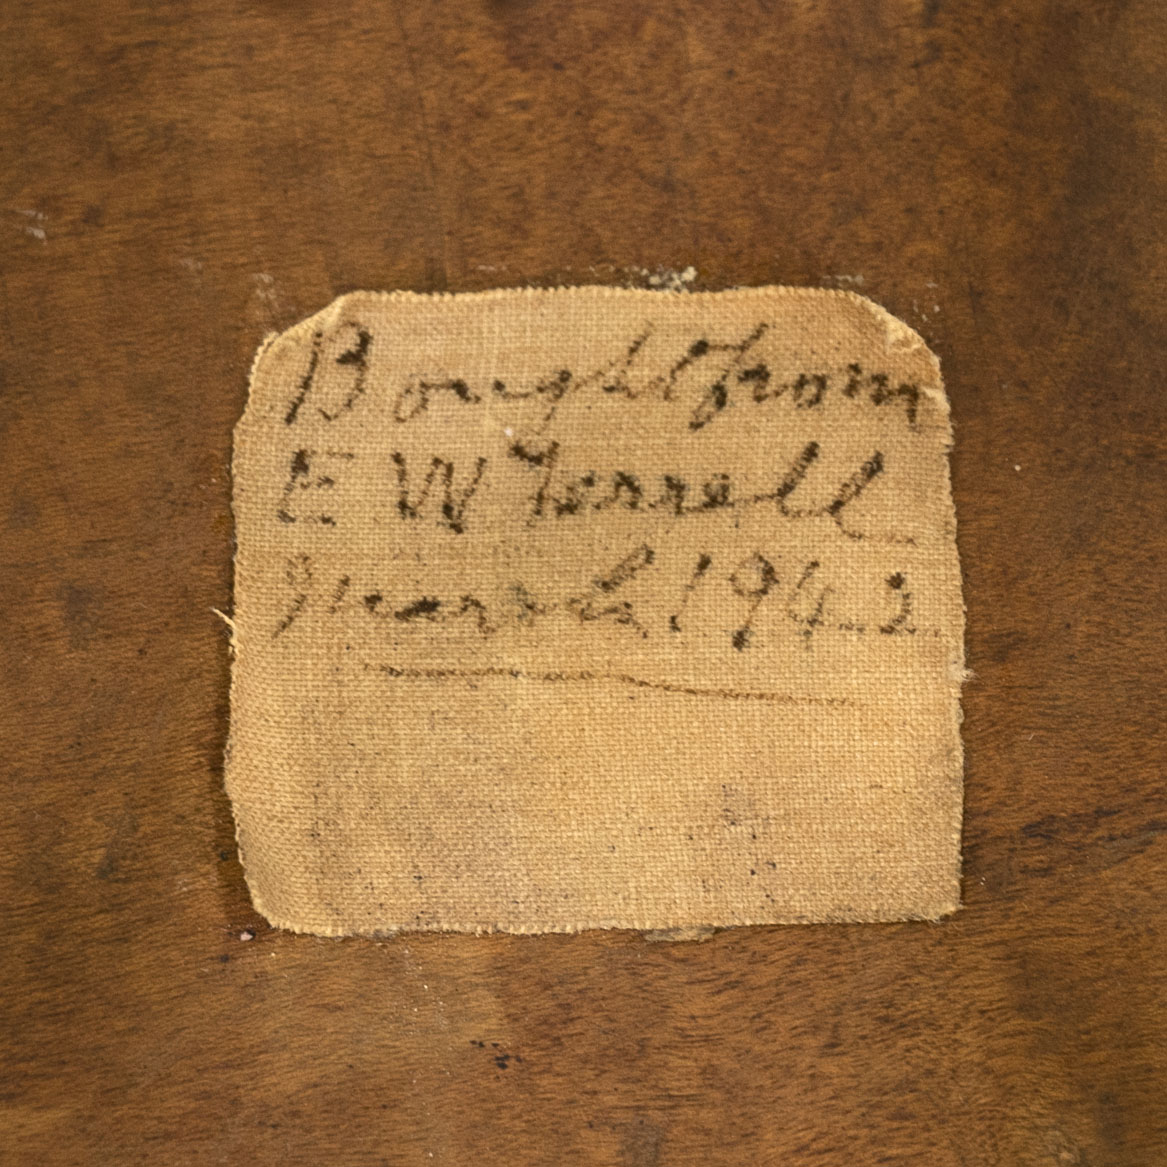 Bought from
E W Terrell
March 1942